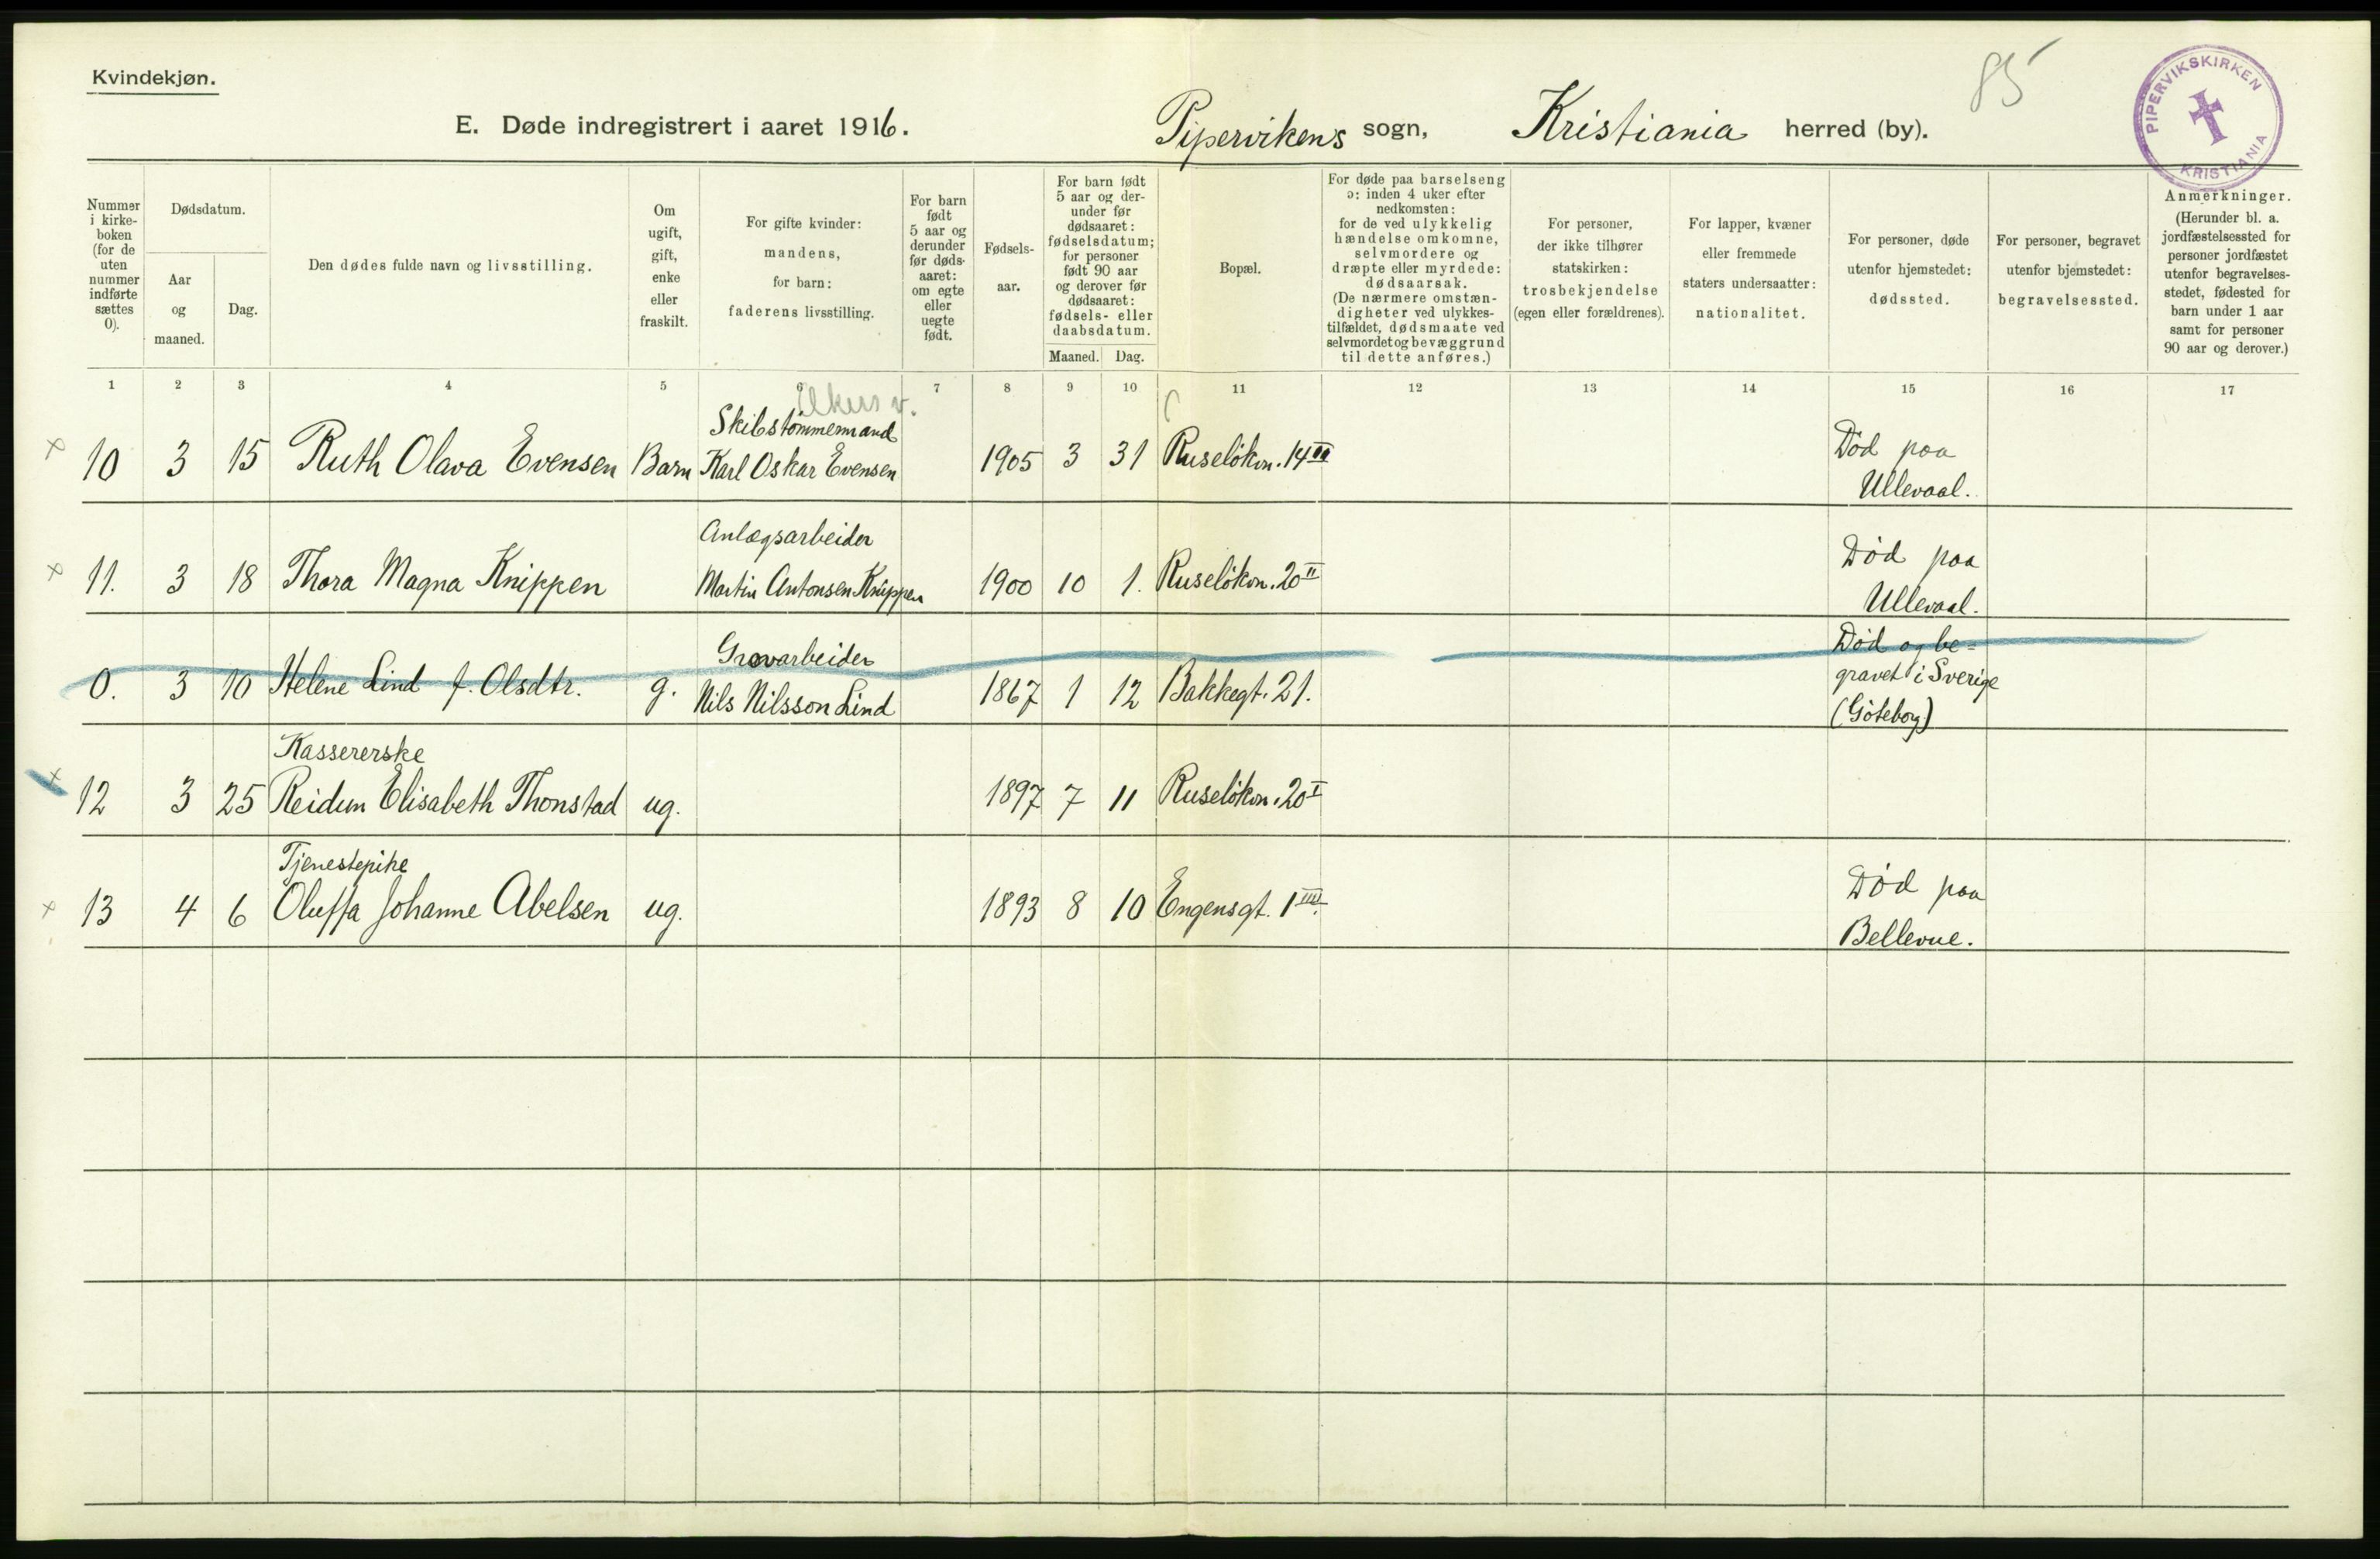 Kvindekjøn.
85
PIPERVIKSKIRKEN
KRISTIANIA
E. Døde indregistrert i aaret 1916.
Pipervikens sogn, Kristiania herred (by).
Nummer i kirke-boken (for de uten nummer indførte sættes 0).
Dødsdatum.
Aar og maaned.
Dag.
Den dødes fulde navn og livsstilling.
Om ugift, gift, enke eller fraskilt.
For gifte kvinder: mandens, for barn: faderens livsstilling.
For barn født 5 aar og derunder før døds-aaret: om egte eller uegte født.
Fødsels-aar.
For barn født 5 aar og der-under før dødsaaret: fødselsdatum; for personer født 90 aar og derover før dødsaaret: fødsels- eller daabsdatum.
Maaned. Dag.
Bopæl.
For døde paa barselseng ɔ: inden 4 uker efter nedkomsten: for de ved ulykkelig hændelse omkomne, selvmordere og dræpte eller myrdede: dødsaarsak. (De nærmere omstæn-digheter ved ulykkes-tilfældet, dødsmaate ved selvmordet og bevæggrund til dette anføres.)
For personer, der ikke tilhører statskirken: trosbekjendelse (egen eller forældrenes).
For lapper, kvæner eller fremmede staters undersaatter: nationalitet.
For personer, døde utenfor hjemstedet: dødssted.
For personer, begravet utenfor hjemstedet: begravelsessted.
Anmerkninger. (Herunder bl. a. jordfæstelsessted for personer jordfæstet utenfor begravelses-stedet, fødested for barn under 1 aar samt for personer 90 aar og derover.)
1 2 3 4 5 6 7 8 9 10 11 12 13 14 15 16 17
Akers v.
Skibstømmermand
10 3 15 Ruth Olava Evensen Barn Karl Oskar Evensen 1905 3 31 Ruseløkvn. 14 III Død paa
Ullevaal.
Anlægsarbeider
11. 3 18 Thora Magna Knippen Martin Antonsen Knippen 1900 10 1. Ruseløkvn. 20 II Død paa
Ullevaal.
Grovarbeider
0. 3 10 Helene Lind f. Olsdtr. g. Nils Nilsson Lind 1867 1 12 Bakkegt. 21. Død og be=
gravet i Sverige
(Göteborg)
Kassererske
12 3 25 Reidun Elisabeth Thonstad ug. 1897 7 11 Ruseløkvn. 20 I
Tjenestepike
13 4 6 Oluffa Johanne Abelsen ug. 1893 8 10 Engensgt. 1 III. Død paa
Bellevue.